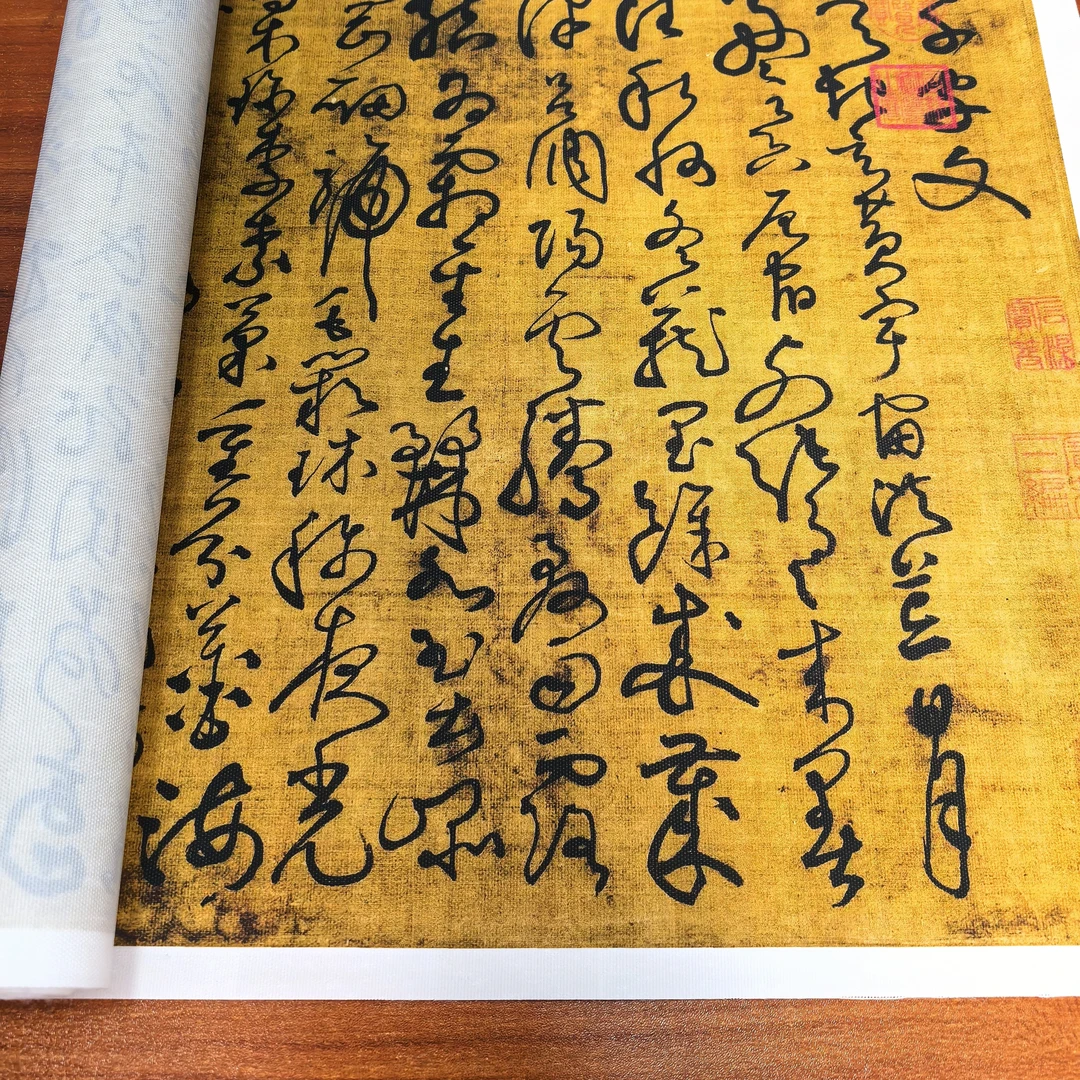 千字文
天地玄黄宇宙洪荒日月
盈昃辰宿列張寒来暑
往秋收冬藏閏餘成歲
律吕調陽雲騰致雨露
結為霜金生麗水玉出崐
岡劍號巨闕珠稱夜光
果珍李柰菜重芥薑海